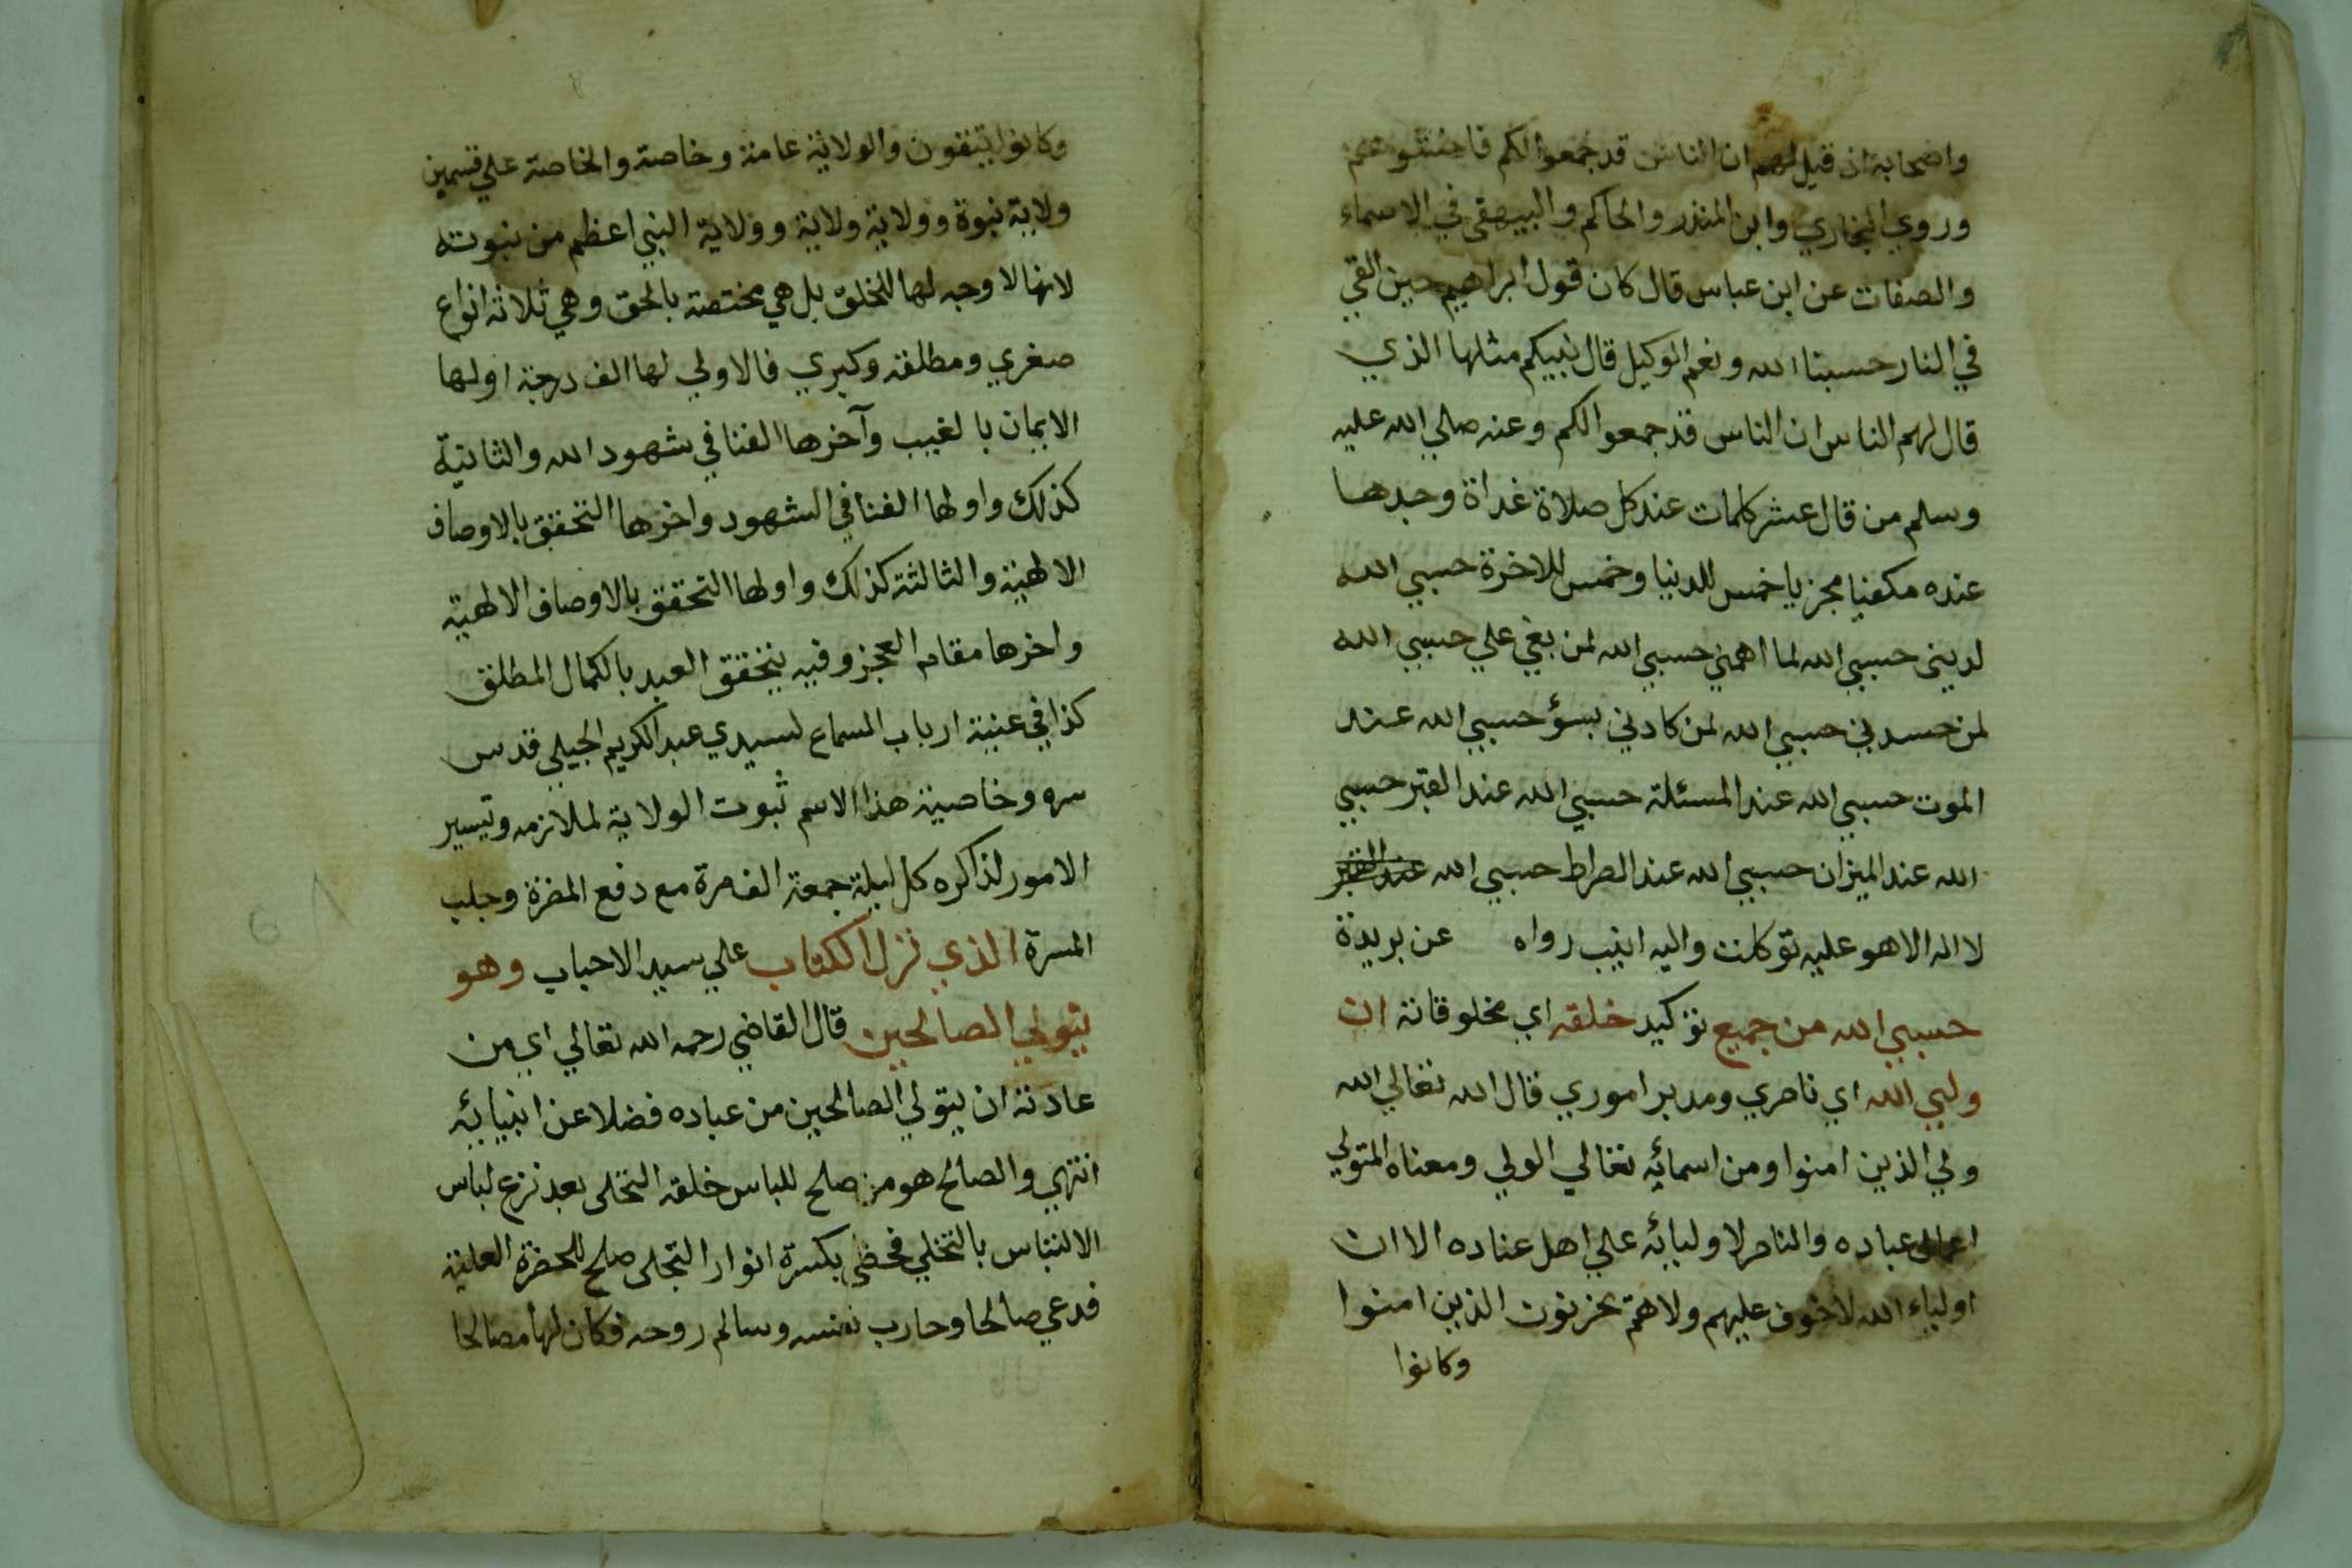 واصحابه اذ قيل لهم ان الناس قد جمعوا لكم فاخشوهم
وروي البخاري وابن المنذر والحاكم والبيهقي في الاسماء
والصفات عن ابن عباس قال كان قول ابراهيم حين القي
في النار حسبنا الله ونعم الوكيل قال نبيكم مثلها الذي
قال لهم الناس ان الناس قد جمعوا لكم وعنه صلي الله عليه
وسلم من قال عشر كلمات عند كل صلاة غداة وجدها
عنده مكفيا مجزيا خمس للدنيا وخمس للاخرة حسبي الله
لديني حسبي الله لما اهمني حسبي الله لمن بغي علي حسبي الله
لمن حسدني حسبي الله لمن كادني بسؤ حسبي الله عند
الموت حسبي الله عند المسئلة حسبي الله عند القبر حسبي
الله عند الميزان حسبي الله عند الصراط حسبي الله عند القبر
لا اله الا هو عليه توكلت واليه انيب رواه عن بريدة
حسبي الله من جميع توكيد خلقه اي مخلوقاته ان
وليي الله اي ناصري ومدبر اموري قال الله تعالي الله
ولي الذين امنوا ومن اسمائه تعالي الولي ومعناه المتولي
عباده والناصر لاوليائه علي اهل عناده الا ان
اولياء الله لا خوف عليهم ولا هم يحزنون الذين امنوا
وكانوا
وكانوا يتقون والولاية عامة وخاصة والخاصة علي قسمين
ولاية نبوة وولاية ولاية وولاية النبي اعظم من نبوته
لانها لا وجه لها للخلق بل هي مختصة بالحق وهي ثلاثة انواع
صغري ومطلقة وكبري فالاولي لها الف درجة اولها
الايمان بالغيب وآخرها الفنا في شهود الله والثانية
كذلك واولها الفنا في الشهود واخرها التحقق بالاوصاف
الالهية والثالثة كذلك واولها التحقق بالاوصاف الالهية
واخرها مقام العجز وفيه يتحقق العبد بالكمال المطلق
كذا في غنية ارباب السماع لسيدي عبد الكريم الجيلي قدس
سره وخاصية هذا الاسم ثبوت الولاية لملازمه وتيسير
الامور لذاكره كل ليلة جمعة الف مرة مع دفع المضرة وجلب
المسرة الذي نزل الكتاب علي سيد الاحباب وهو
يتولي الصالحين قال القاضي رحمه الله تعالي اي من
عادته ان يتولي الصالحين من عباده فضلا عن انبيائه
انتهي والصالح هو من صلح للباس خلقه التحلي بعد نزع لباس
الالتباس بالتخلي فحظي بكسرة انوار التجلي صلح للحضرة العلية
فدعي صالحا وحارب نفسه وسالم روحه فكان لها مصالحا